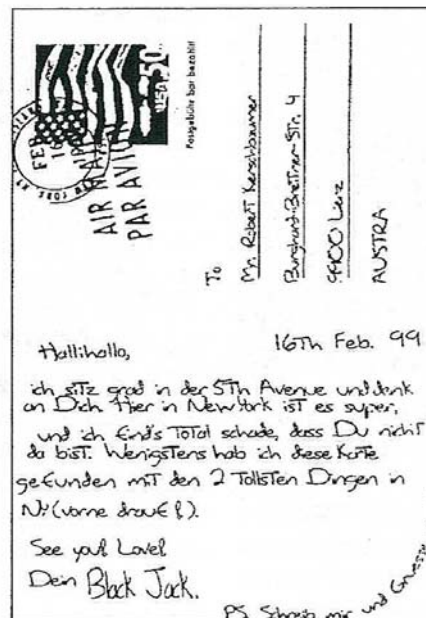 USA 50
Postgebühr bar bezahlt
FEB
16
AIR MAIL
PAR AVION
To
Mr. Robert Kerschbaumer
Burghard-Breitner-Str. 4
9900 Lienz
AUSTRA
16Th Feb. 99
Hallihallo,
ich sitz grad in der 5Th Avenue und denk
an Dich. Hier in New York ist es super,
und ich find's Total schade, dass Du nicht
da bist. Wenigstens hab ich diese Karte
gefunden mit den 2 Tollsten Dingen in
NY (vorne drauf!).
See you! Love!
Dein Black Jack.
PS. Schreib mir und